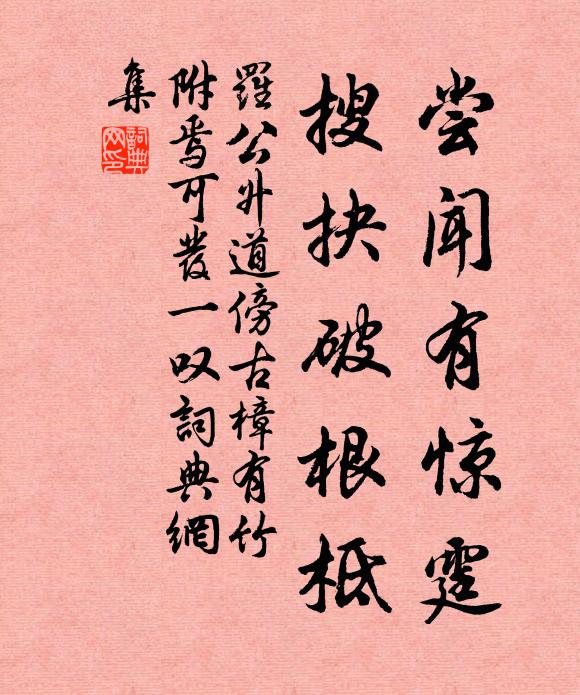 尝闻有惊霆
搜抉破根柢
羅公升道傍古樟有竹
附焉可發一叹詞典網
集
詞典
网印